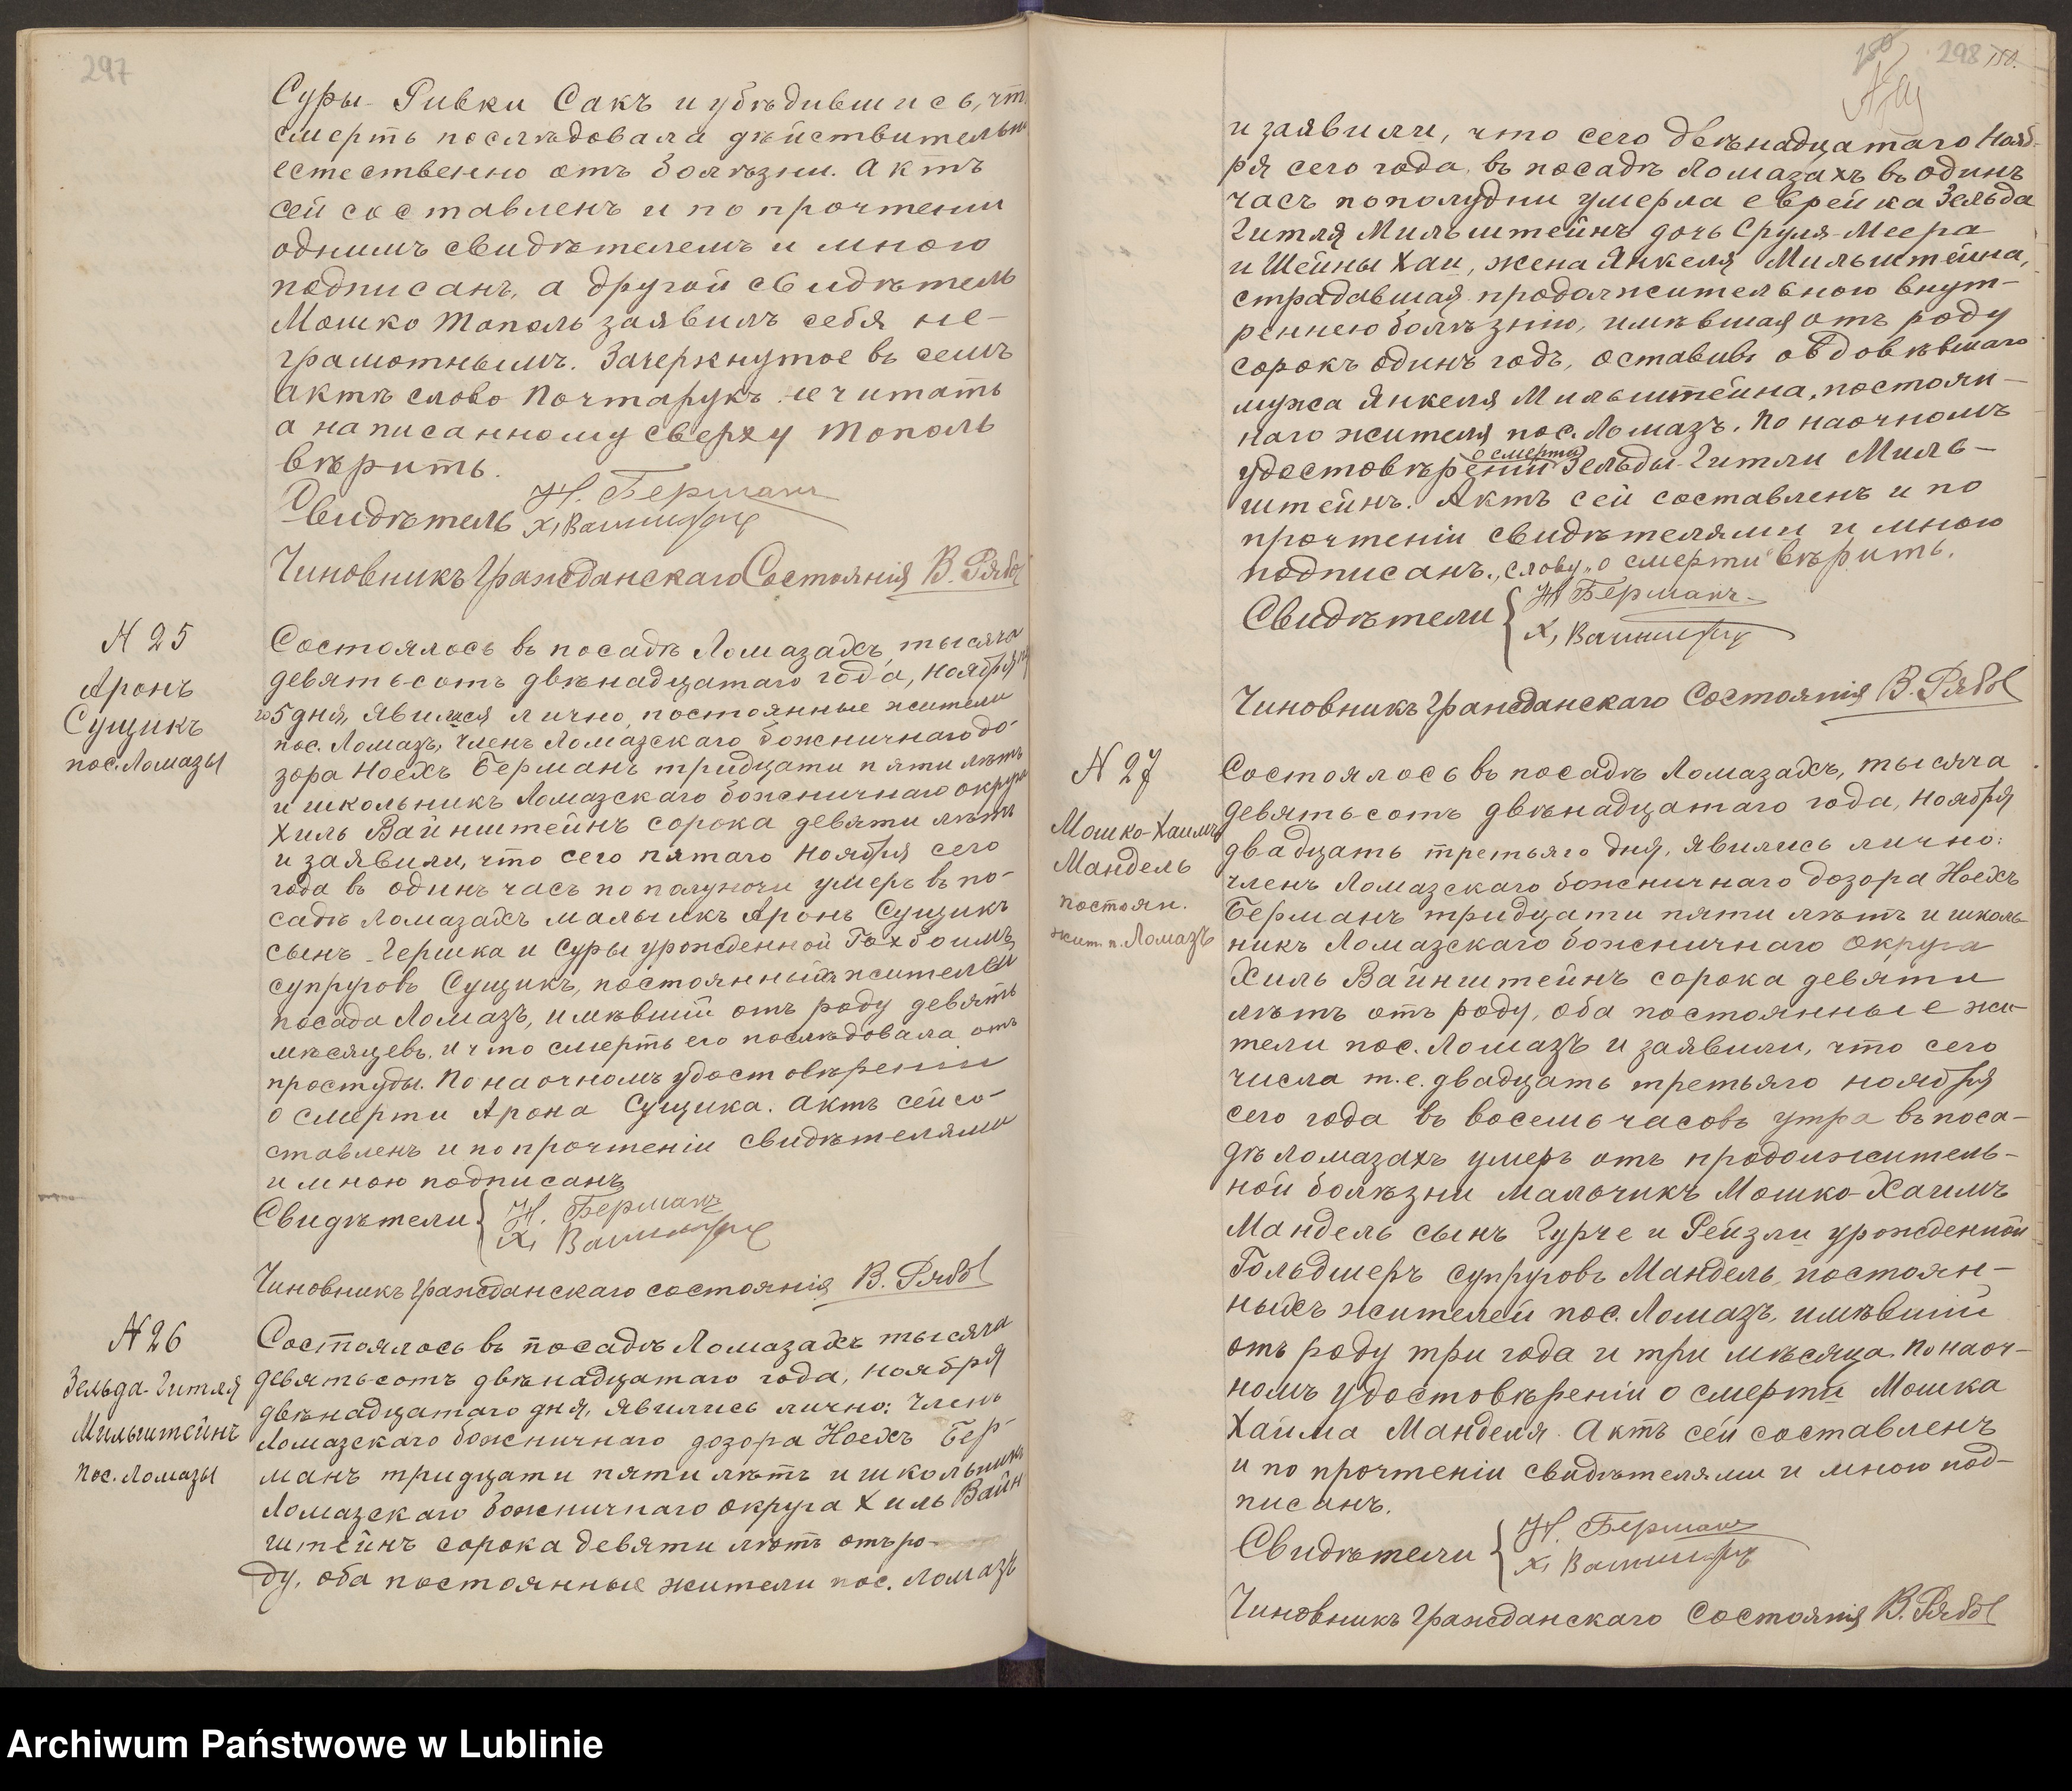 297
Суры-Ривки Сакъ и убѣдившись, что
смерть послѣдовала дѣйствительно
естественно отъ болѣзни. Актъ
сей составленъ и по прочтении
однимъ свидѣтелемъ и мною
подписанъ, а другой свидѣтель
Мошко Тополь заявилъ себя не-
грамотнымъ. Зачеркнутое въ семъ
актѣ слово Почтарукъ не читать
а написанному сверху Тополь
вѣрить.
Свидѣтель Н. Берманъ
Х. Вайнштейн
Чиновникъ Гражданскаго Состоянія В. Рябо
N 25
Аронъ
Сущикъ
пос. Ломазы
Состоялось въ посадѣ Ломазахъ, тысяча
девятьсотъ двѣнадцатаго года, Ноября
5 дня, явился лично, постоянные жители
пос. Ломазъ, членъ Ломазскаго божничнаго до-
зора Ноехъ Берманъ тридцати пяти лѣтъ
и школьникъ Ломазскаго божничнаго округа
Хиль Вайнштейнъ сорока девяти лѣтъ
и заявили, что сего пятаго Ноября сего
года въ одинъ часъ по полуночи умеръ въ по-
садѣ Ломазахъ малыикъ Аронъ Сущикъ
сынъ Гершка и Суры урожденной Гохбоимъ
супруговъ Сущикъ, постоянный жителей
посада Ломазъ, имѣвшій отъ роду девять
мѣсяцевъ, и что смерть его послѣдовала отъ
простуды. По наочномъ удостовѣреніи
о смерти Арона Сущика. Актъ сей со-
ставленъ и по прочтеніи свидѣтелями
и мною подписанъ
Свидѣтели { Н. Берманъ
Х. Вайнштейн
Чиновникъ Гражданскаго состоянія В. Рябо
N 26
Зельда-Гитля
Мильштейнъ
пос. Ломазы
Состоялось въ посадѣ Ломазахъ тысяча
девятьсотъ двѣнадцатаго года, Ноября
двѣнадцатаго дня, явились лично: членъ
Ломазскаго божничнаго дозора Ноехъ Бер-
манъ тридцати пяти лѣтъ и школьникъ
Ломазскаго божничнаго округа Хиль Вайн
штейнъ сорока девяти лѣтъ отъ ро-
ду, оба постоянные жители пос. Ломазъ
298 150.
и заявили, что сего двѣнадцатаго Нояб-
ря сего года, въ посадѣ Ломазахъ въ одинъ
часъ пополудни умерла еврейка Зельда
Гитля Мильштейнъ дочь Сруля-Меера
и Шейны Хаи, жена Янкеля Мильштейна,
страдавшая продолжительною внут-
реннею болѣзнію, имѣвшая отъ роду
сорокъ одинъ годъ, оставивъ овдовѣвшаго
мужа Янкеля Мильштейна, постоян-
наго жителя пос. Ломазъ. По наочномъ
удостовѣреніи о смерти Зельды-Гитли Миль-
штейнъ. Актъ сей составленъ и по
прочтеніи свидѣтелями и мною
подписанъ., слову „о смерти“ вѣрить.
Свидѣтели { Н Берманъ
Х. Вайнштейн
Чиновникъ Гражданскаго Состоянія В. Рябо
N 27
Мошко-Хаимъ
Мандель
постоян.
жит. п. Ломазъ
Состоялось въ посадѣ Ломазахъ, тысяча
девятьсотъ двѣнадцатаго года, Ноября
двадцать третьяго дня, явились лично:
членъ Ломазскаго божничнаго дозора Ноехъ
Берманъ тридцати пяти лѣтъ и школь-
никъ Ломазскаго божничнаго округа
Хиль Вайнштейнъ сорока девяти
лѣтъ отъ роду, оба постоянные жи-
тели пос. Ломазъ и заявили, что сего
числа т.е. двадцать третьяго ноября
сего года въ восемь часовъ утра въ поса-
дѣ Ломазахъ умеръ отъ продолжитель-
ной болѣзни мальчикъ Мошко-Хаимъ
Мандель сынъ Гурче и Рейзли урожденной
Гольдмеръ супруговъ Мандель, постоян-
ныхъ жителей пос. Ломазъ, имѣвшій
отъ роду три года и три мѣсяца. По наоч-
номъ удостовѣреніи о смерти Мошка
Хаима Манделя. Актъ сей составленъ
и по прочтеніи свидѣтелями и мною под-
писанъ.
Свидѣтели { Н. Берманъ
Х. Вайнштейн
Чиновникъ Гражданскаго Состоянія В. Рябо
Archiwum Państwowe w Lublinie